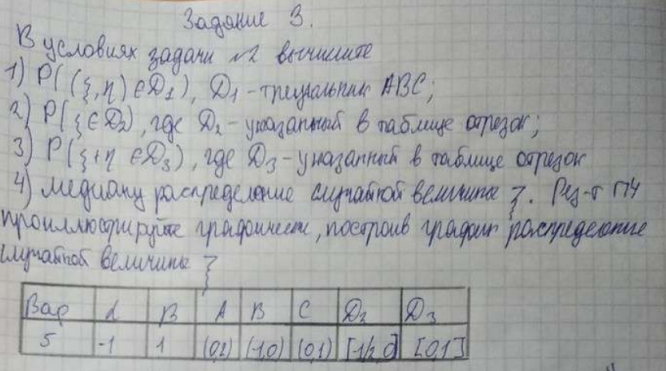 Задание 3.
В условиях задачи №2 вычислите
1) P((ξ,η)∈D₁), D₁-треугольник ABC;
2) P(ξ∈D₂), где D₂-указанный в таблице отрезок;
3) P(ξ+η∈D₃), где D₃-указанный в таблице отрезок
4) медиану распределение случайной величины ξ. Рез-т п4
проиллюстрируйте графически, построив график распределение
случайной величины ξ
Вар α B A B C D₂ D₃
5 -1 1 (0,2) (-1,0) (0,1) [-1/2,0] [0,1]